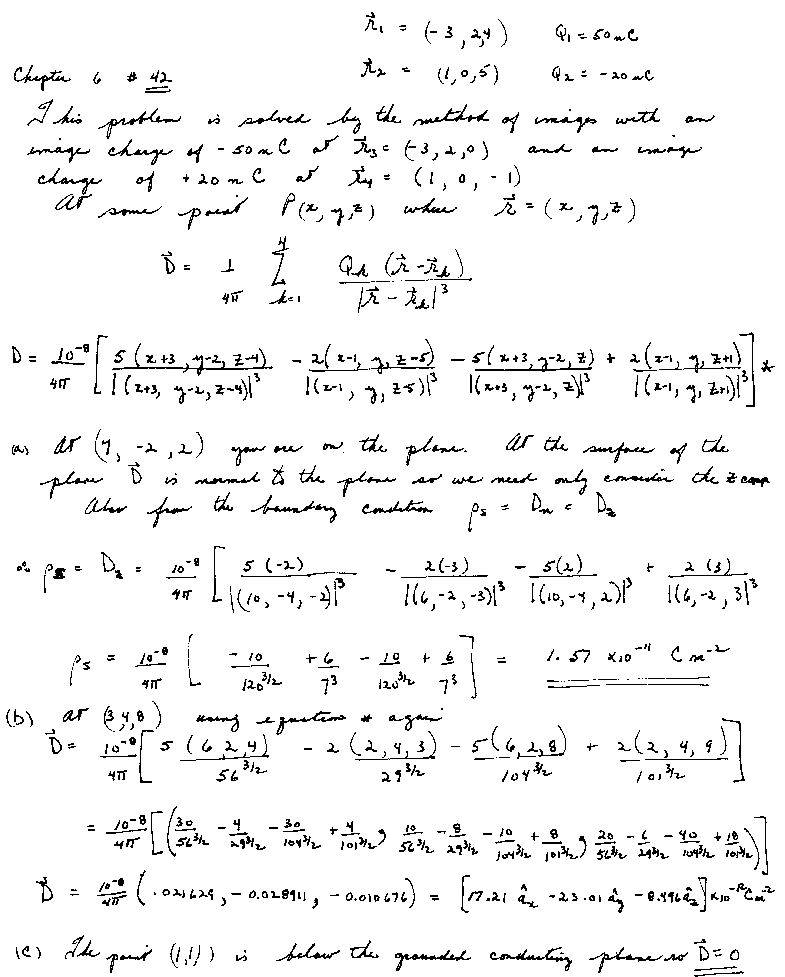 r⃗₁ = (-3, 2, 4)   Q₁ = 50 nC
Chapter 6 # 42   r⃗₂ = (1, 0, 5)   Q₂ = -20 nC
This problem is solved by the method of images with an
image charge of -50 nC at r⃗₃ = (-3, 2, 0) and an image
charge of +20 nC at r⃗₄ = (1, 0, -1)
At some point P(x, y, z) where r⃗ = (x, y, z)
D⃗ = 1/4π Σ_{k=1}^{4} Q_k (r⃗ - r⃗_k) / |r⃗ - r⃗_k|³
D = 10⁻⁸/4π [ 5(x+3, y-2, z-4)/|(x+3, y-2, z-4)|³ - 2(x-1, y, z-5)/|(x-1, y, z-5)|³ - 5(x+3, y-2, z)/|(x+3, y-2, z)|³ + 2(x-1, y, z+1)/|(x-1, y, z+1)|³ ] *
(a) At (7, -2, 2) you are on the plane. At the surface of the
plane D⃗ is normal to the plane so we need only consider the z comp
Also from the boundary condition ρs = Dn = Dz
∴ ρs = Dz = 10⁻⁸/4π [ 5(-2)/|(10, -4, -2)|³ - 2(-3)/|(6, -2, -3)|³ - 5(2)/|(10, -4, 2)|³ + 2(3)/|(6, -2, 3|³
ρs = 10⁻⁸/4π [ -10/120^{3/2} + 6/7³ - 10/120^{3/2} + 6/7³ ] = 1.57 x10⁻¹¹ C m⁻²
(b) At (3,4,8) using equation * again
D⃗ = 10⁻⁸/4π [ 5(6, 2, 4)/56^{3/2} - 2(2, 4, 3)/29^{3/2} - 5(6, 2, 8)/104^{3/2} + 2(2, 4, 9)/101^{3/2} ]
= 10⁻⁸/4π [ (30/56^{3/2} - 4/29^{3/2} - 30/104^{3/2} + 4/101^{3/2}, 10/56^{3/2} - 8/29^{3/2} - 10/104^{3/2} + 8/101^{3/2}, 20/56^{3/2} - 6/29^{3/2} - 40/104^{3/2} + 18/101^{3/2}) ]
D⃗ = 10⁻⁸/4π (.021629, -0.028911, -0.010676) = [17.21 âx - 23.01 ây - 8.496 âz] x10⁻¹² C m⁻²
(c) The point (1,1,1) is below the grounded conducting plane so D⃗ = 0